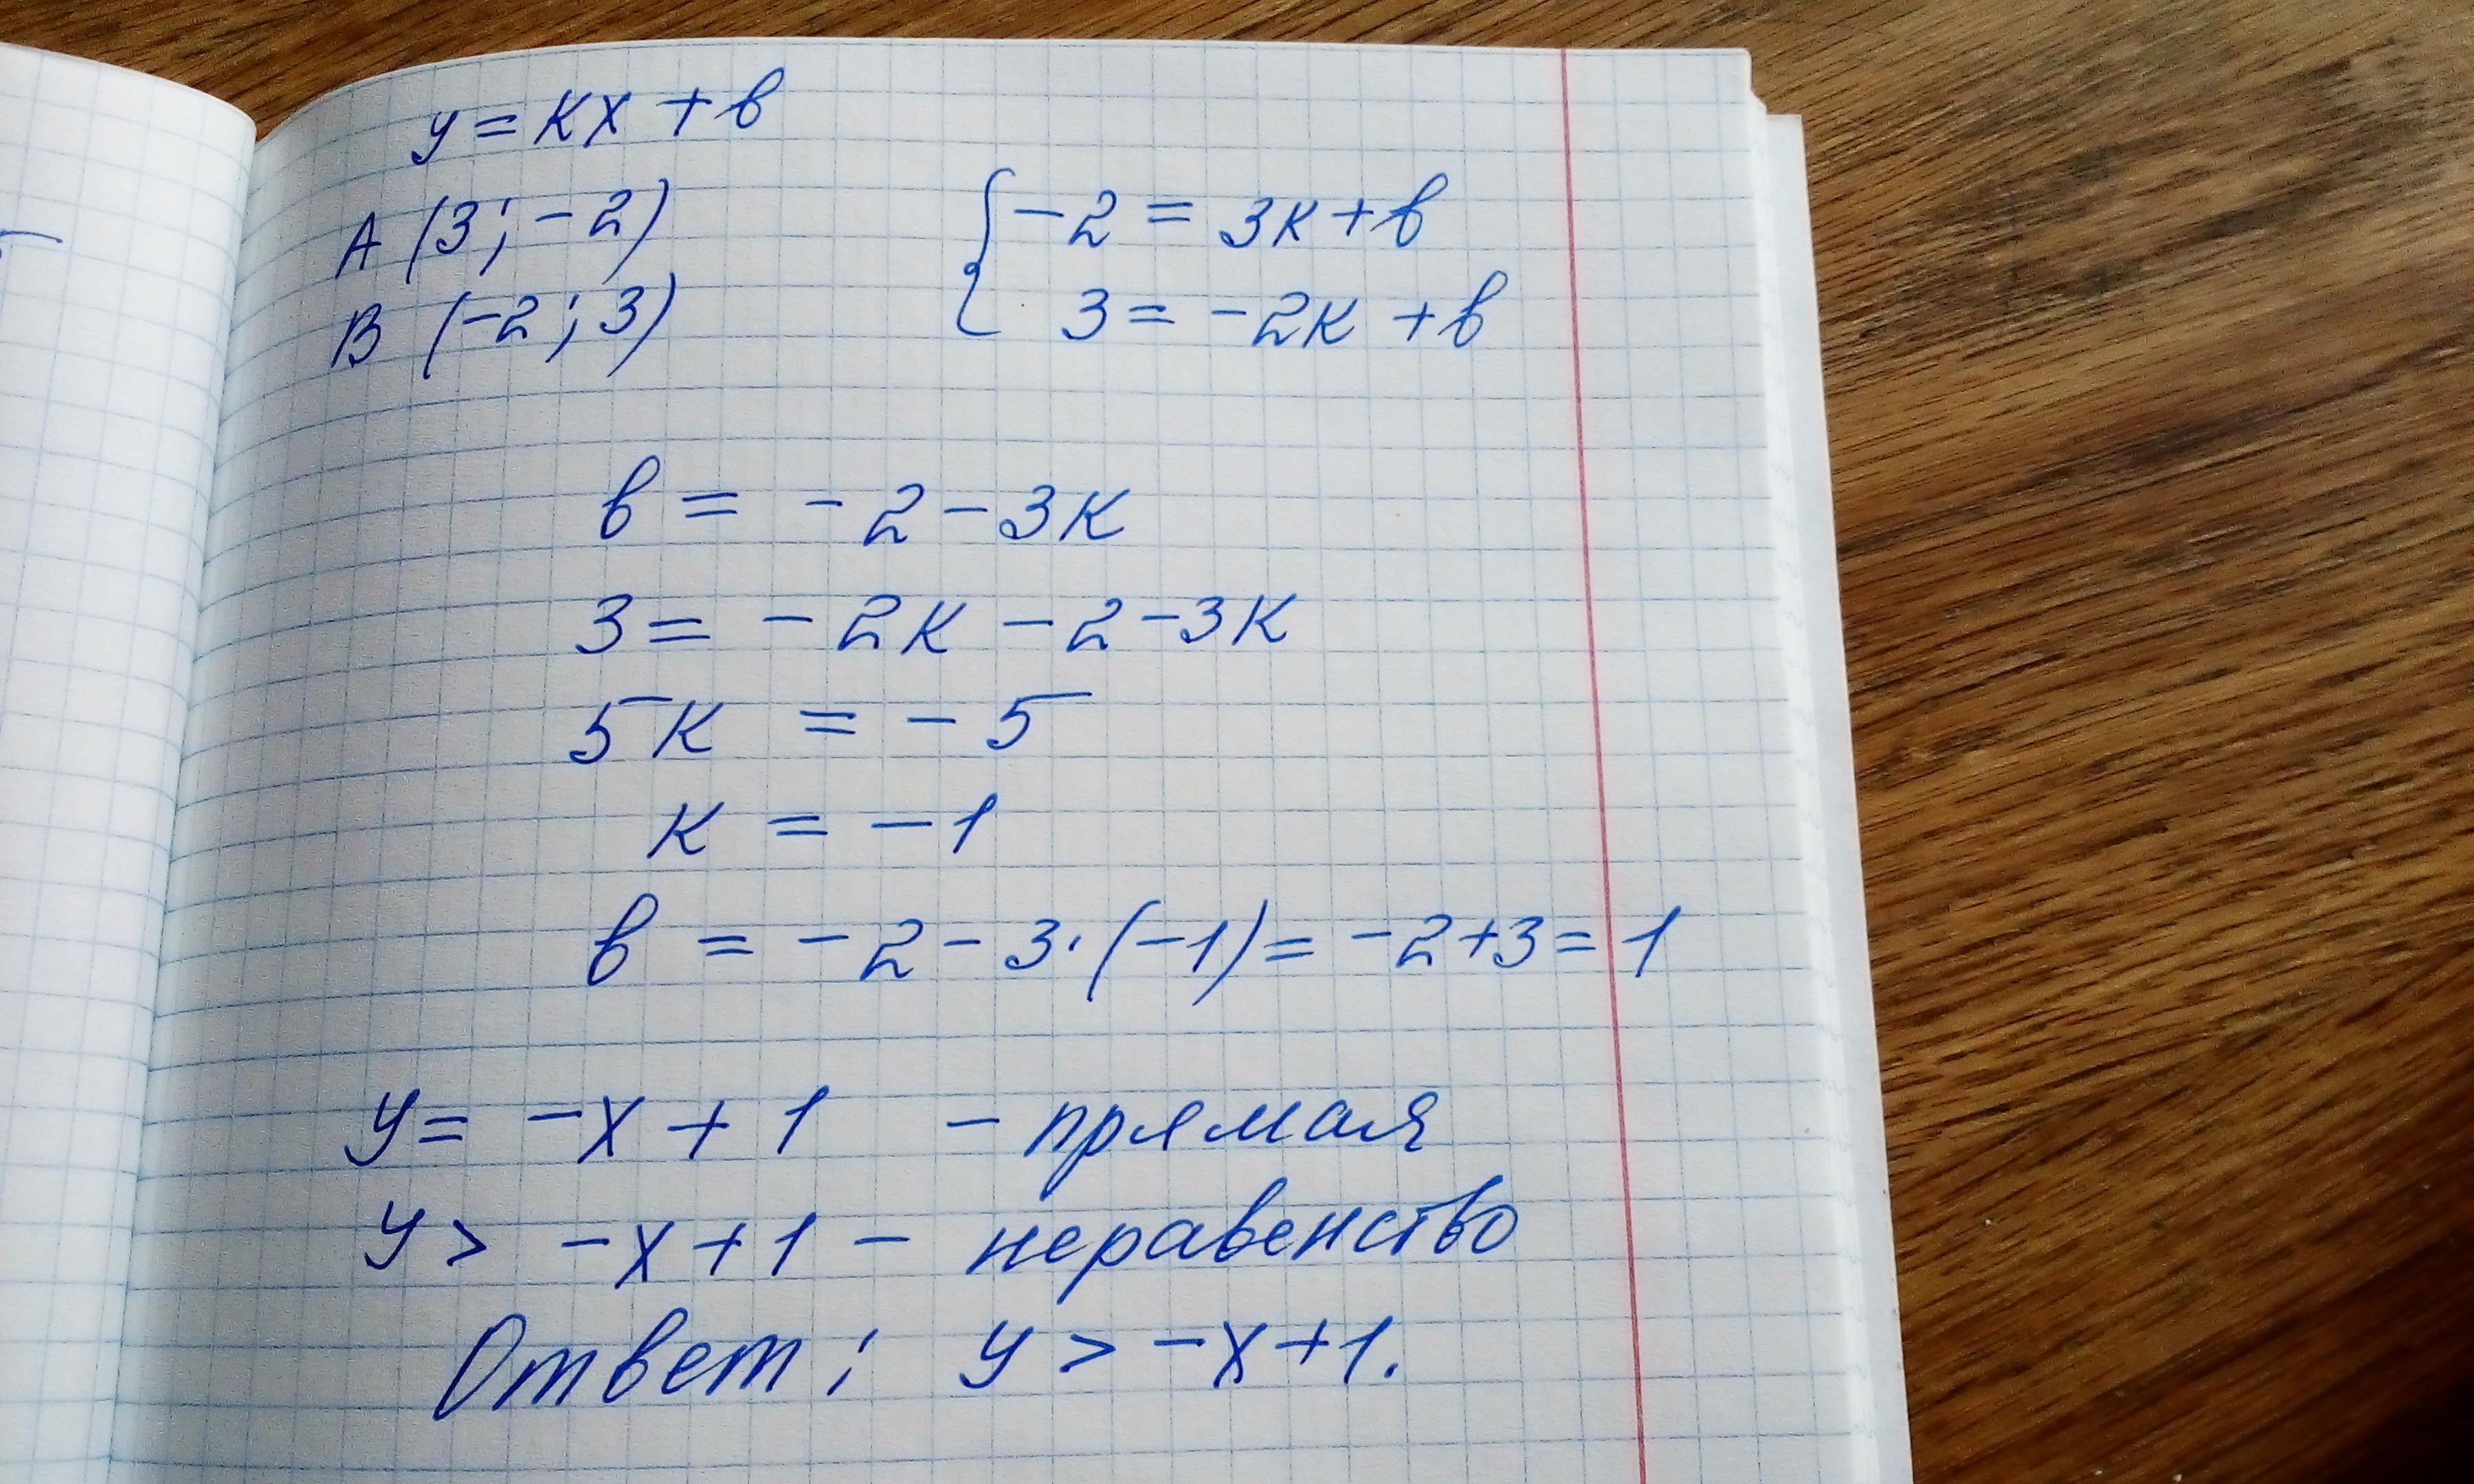 y = kx + b
A (3; -2)
B (-2; 3)
{ -2 = 3k + b
3 = -2k + b
b = -2 - 3k
3 = -2k - 2 - 3k
5k = -5
k = -1
b = -2 - 3·(-1) = -2 + 3 = 1
y = -x + 1 - прямая
y > -x + 1 - неравенство
Ответ: y > -x + 1.